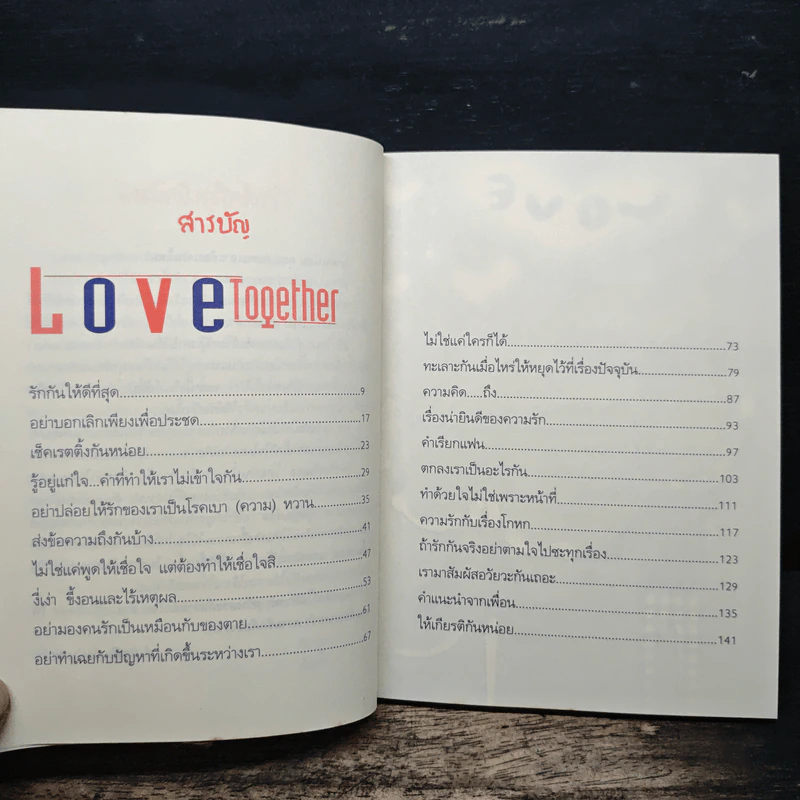 สารบัญ
Love Together
รักกันให้ดีที่สุด.....................................................9
อย่าบอกเลิกเพียงเพื่อประชด....................................17
เช็คเรตติ้งกันหน่อย................................................23
รู้อยู่แก่ใจ...คำที่ทำให้เราไม่เข้าใจกัน..........................29
อย่าปล่อยให้รักของเราเป็นโรคเบา (ความ) หวาน............35
ส่งข้อความถึงกันบ้าง..............................................41
ไม่ใช่แค่พูดให้เชื่อใจ แต่ต้องทำให้เชื่อใจสิ....................47
งี่เง่า ขี้งอนและไร้เหตุผล.........................................53
อย่ามองคนรักเป็นเหมือนกับของตาย..........................61
อย่าทำเฉยกับปัญหาที่เกิดขึ้นระหว่างเรา.......................67
ไม่ใช่แค่ใครก็ได้....................................................73
ทะเลาะกันเมื่อไหร่ให้หยุดไว้ที่เรื่องปัจจุบัน...................79
ความคิด.....ถึง.....................................................87
เรื่องน่ายินดีของความรัก.........................................93
คำเรียกแฟน.........................................................97
ตกลงเราเป็นอะไรกัน..............................................103
ทำด้วยใจไม่ใช่เพราะหน้าที่......................................111
ความรักกับเรื่องโกหก............................................117
ถ้ารักกันจริงอย่าตามใจไปซะทุกเรื่อง..........................123
เรามาสัมผัสอวัยวะกันเถอะ......................................129
คำแนะนำจากเพื่อน................................................135
ให้เกียรติกันหน่อย.................................................141